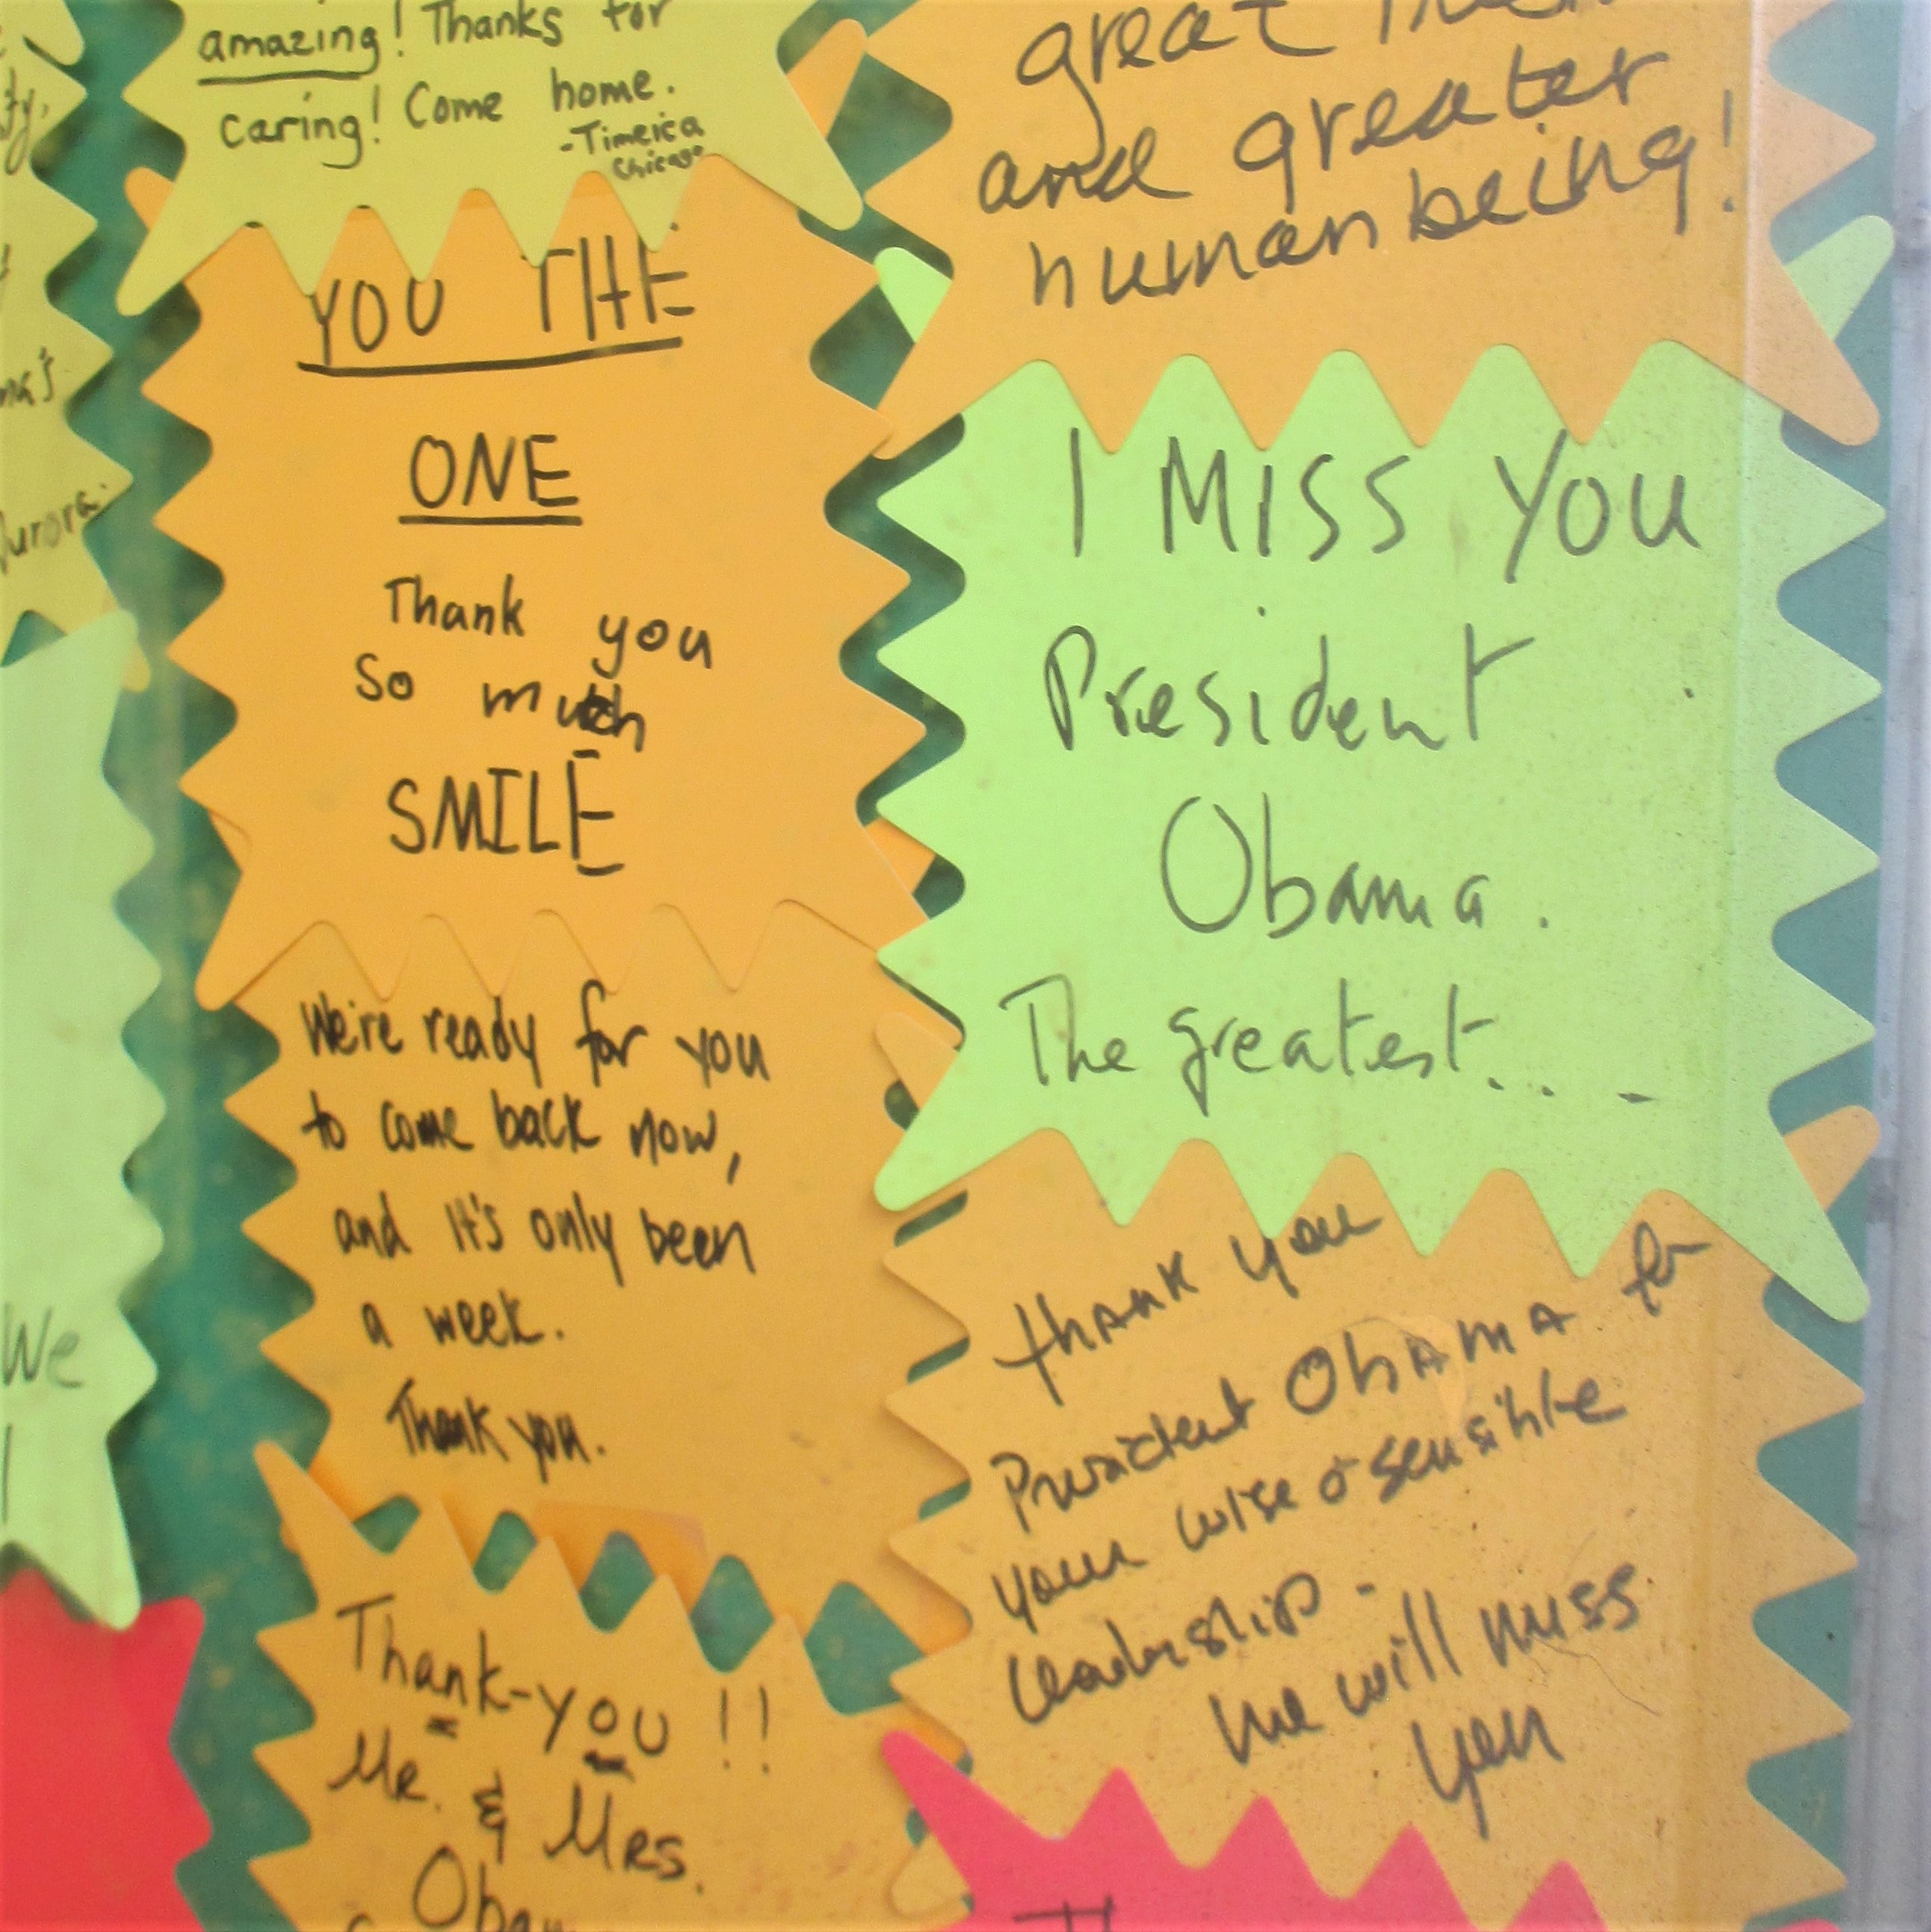 amazing! Thanks for
caring! Come home.
-Timeica
Chicago
YOU THE
ONE
Thank you
So much
SMILE
We're ready for you
to come back now,
and it's only been
a week.
Thank you.
Thank-you!!
Mr. & Mrs.
Obam
great
and greater
human being!
I MISS YOU
President
Obama.
The greatest...
Thank you
President Obama for
your wise & sensible
leadership -
We will miss
you
ma's
Aurora.
We